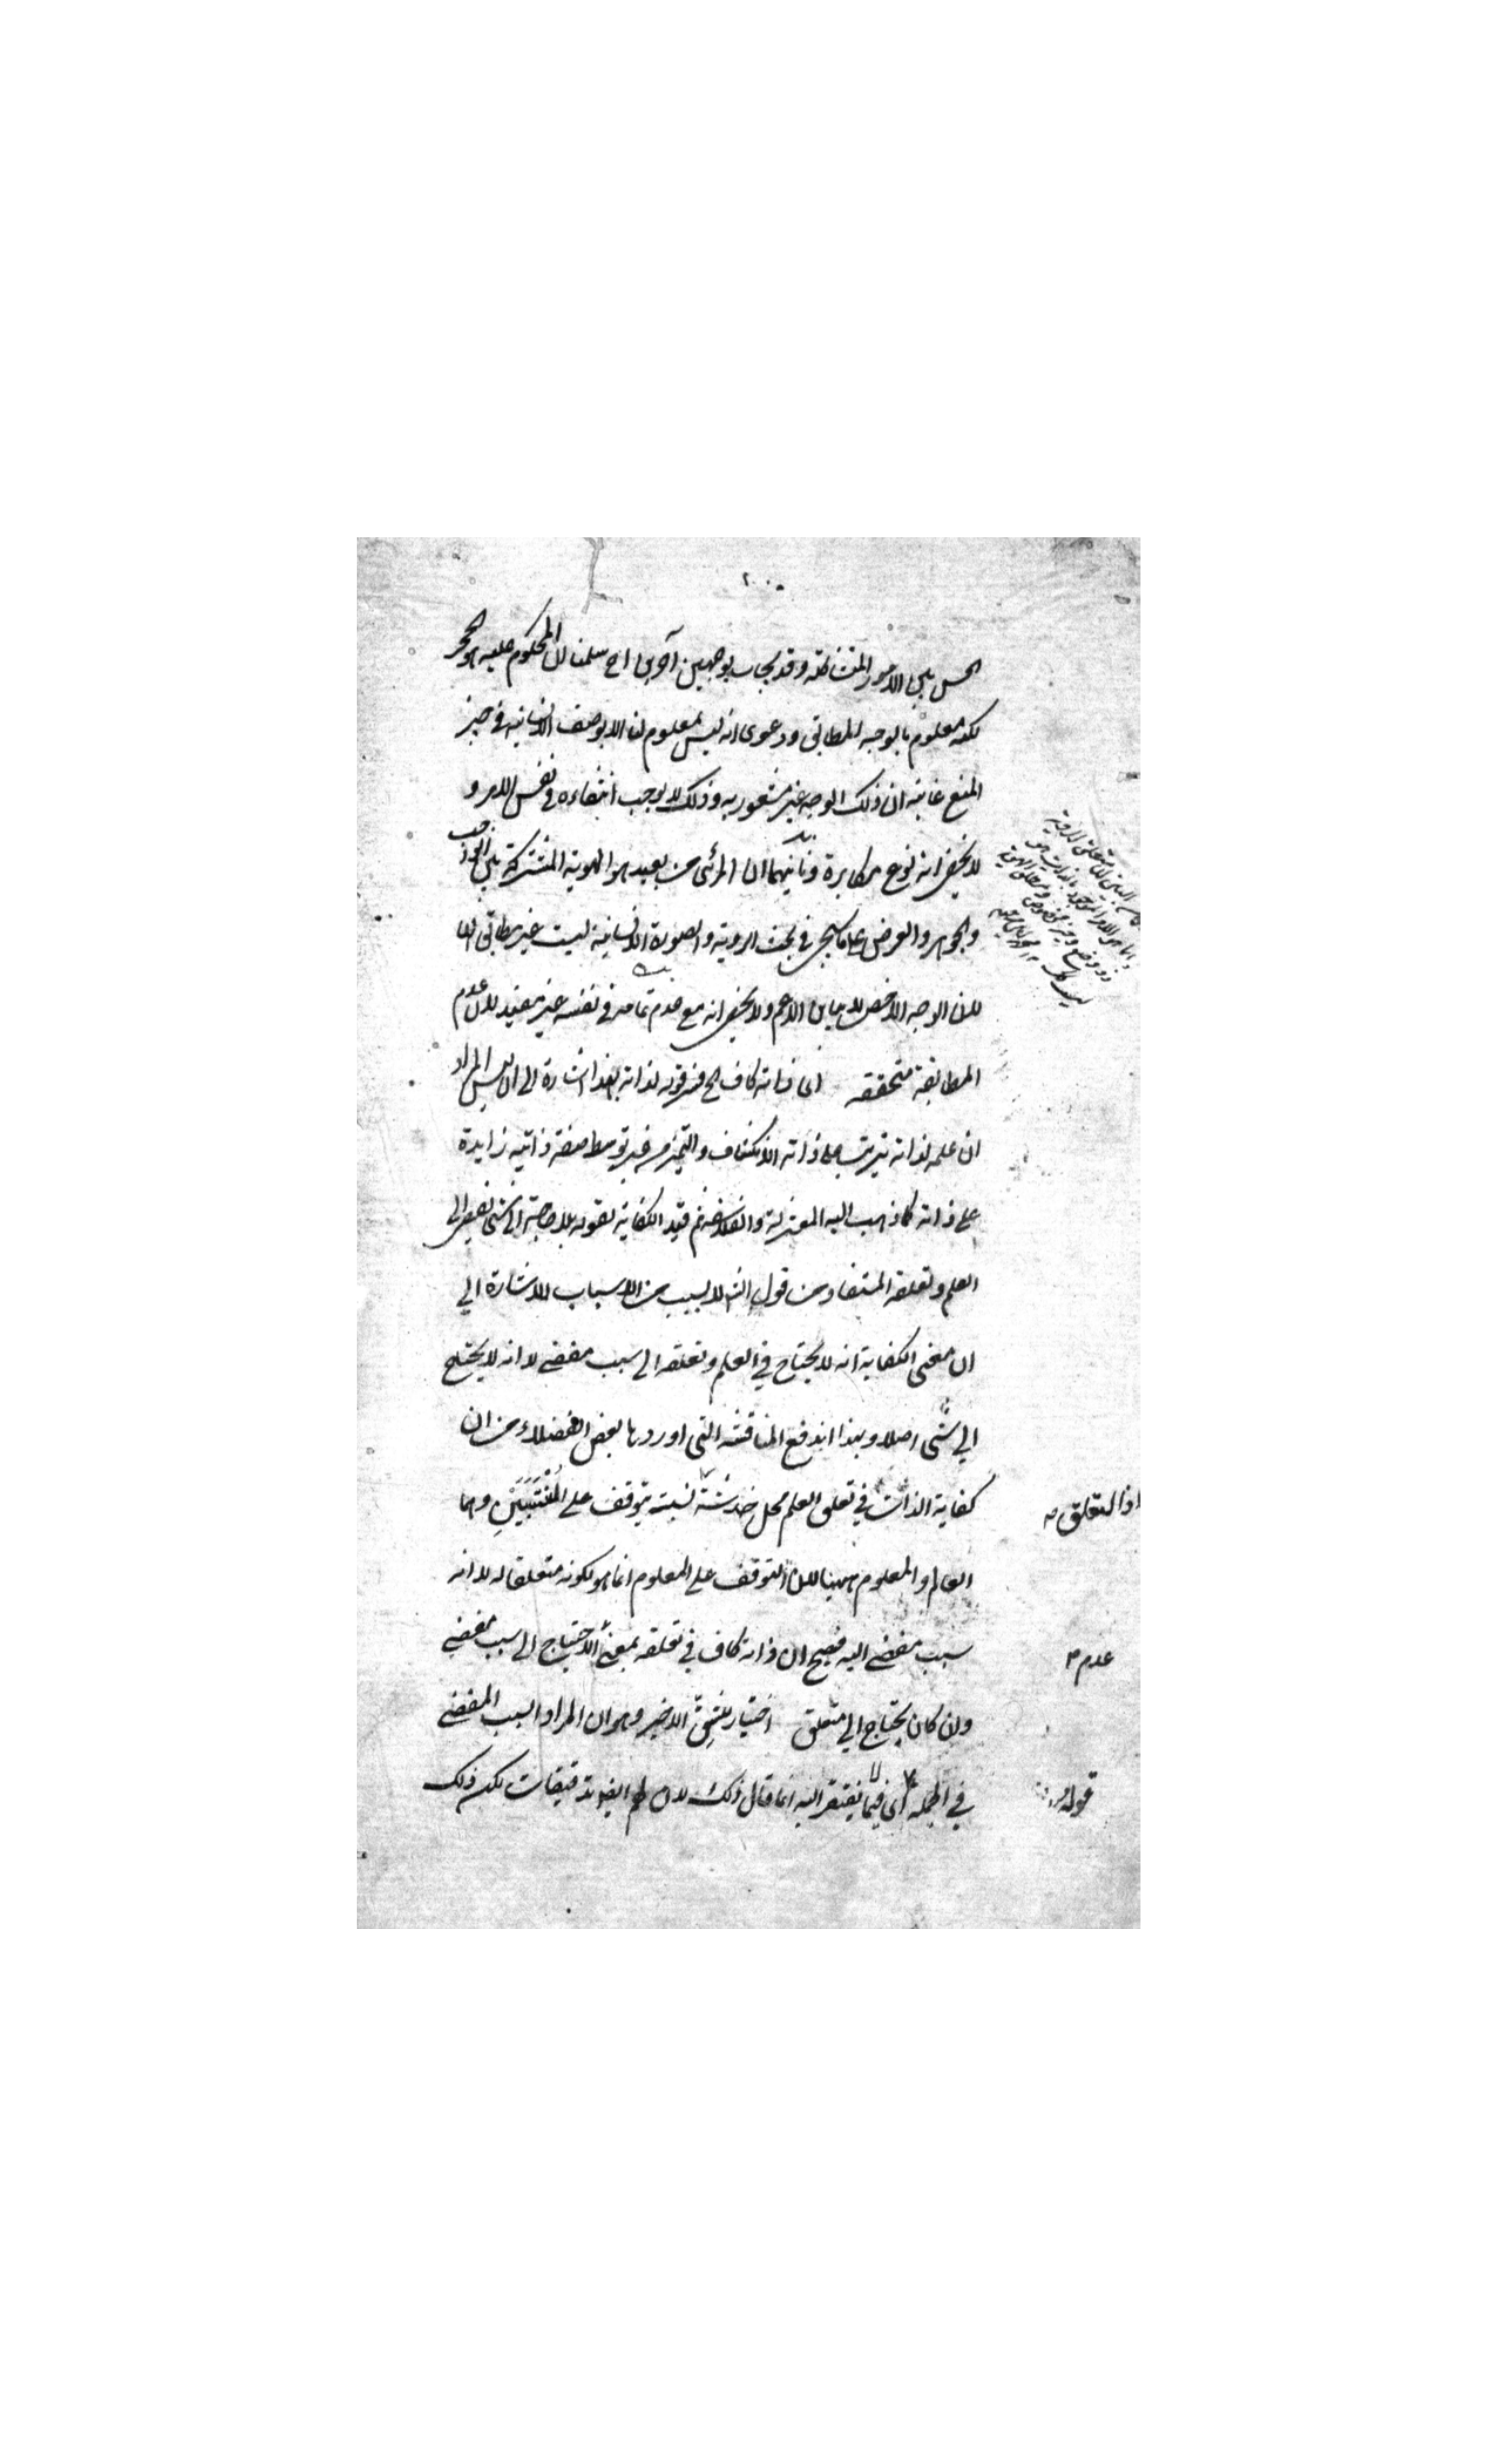 الحس بين الامور المتشاكلة وقد يجاب بوجهين آخرين اح سلمنا ان المحكوم عليه هو الحجر
لكنه معلوم بالوجه المطابق ودعوى انه ليس بمعلوم لنا الا بوصف الانسانية في حيز
المنع غايته ان ذلك الوجه غير مشعور به وذلك لا يوجب انتفاءه في نفس الامر و
لا يخفى انه نوع مكابرة وثانيهما ان المرئي من بعيد هو الهوية المشتركة بين الواجب
والجوهر والعرض على ما سيجئ في بحث الروية والصورة الانسانية ليست غير مطابق لها
لان الوجه الاخص لا يباين الاعم ولا يخفى انه مع عدم تمامه في نفسه غير مفيد لان عدم
المطابقة متحققة اى ذاته كاف الخ فسر قوله لذاته بهذا اشارة الى ان ليس المراد
ان علمه لذاته يترتب على ذاته الانكشاف والتميز من غير توسط صفة ذاتية زايدة
على ذاته كما ذهب اليه المعتزلة والفلاسفة ثم قيد الكفاية بقوله بلا حاجة الى شئ يفضى الى
العلم وتعلقه المستفاد من قول الش لا بسبب من الاسباب للاشارة الي
ان معنى الكفاية انه لا يحتاج في العلم وتعلقه الى سبب مفضي لا انه لا يحتاج
الي شئ اصلا وبهذا اندفع المناقشة التى اوردها بعض الفضلاء من ان
كفاية الذات في تعلق العلم محل خدشة نسبة يتوقف على المُنْتَسَبَيْنِ وهما
اذا لتعلق صـ
العالم والمعلوم ههنا لان التوقف على المعلوم انما هو لكونه متعلقا له لا انه
سبب مفضي اليه فصح ان ذاته كاف في تعلقه بمعنى الاحتياج الى سبب مفضي
عدم
وان كان يحتاج الي متعلق اختيار للشِقّ الاخير وهو ان المراد السبب المفضي
في الجملة اى فيما يفتقر اليه انما قال ذلك لان لهم ايضا تدقيقات لكن ذلك
قوله